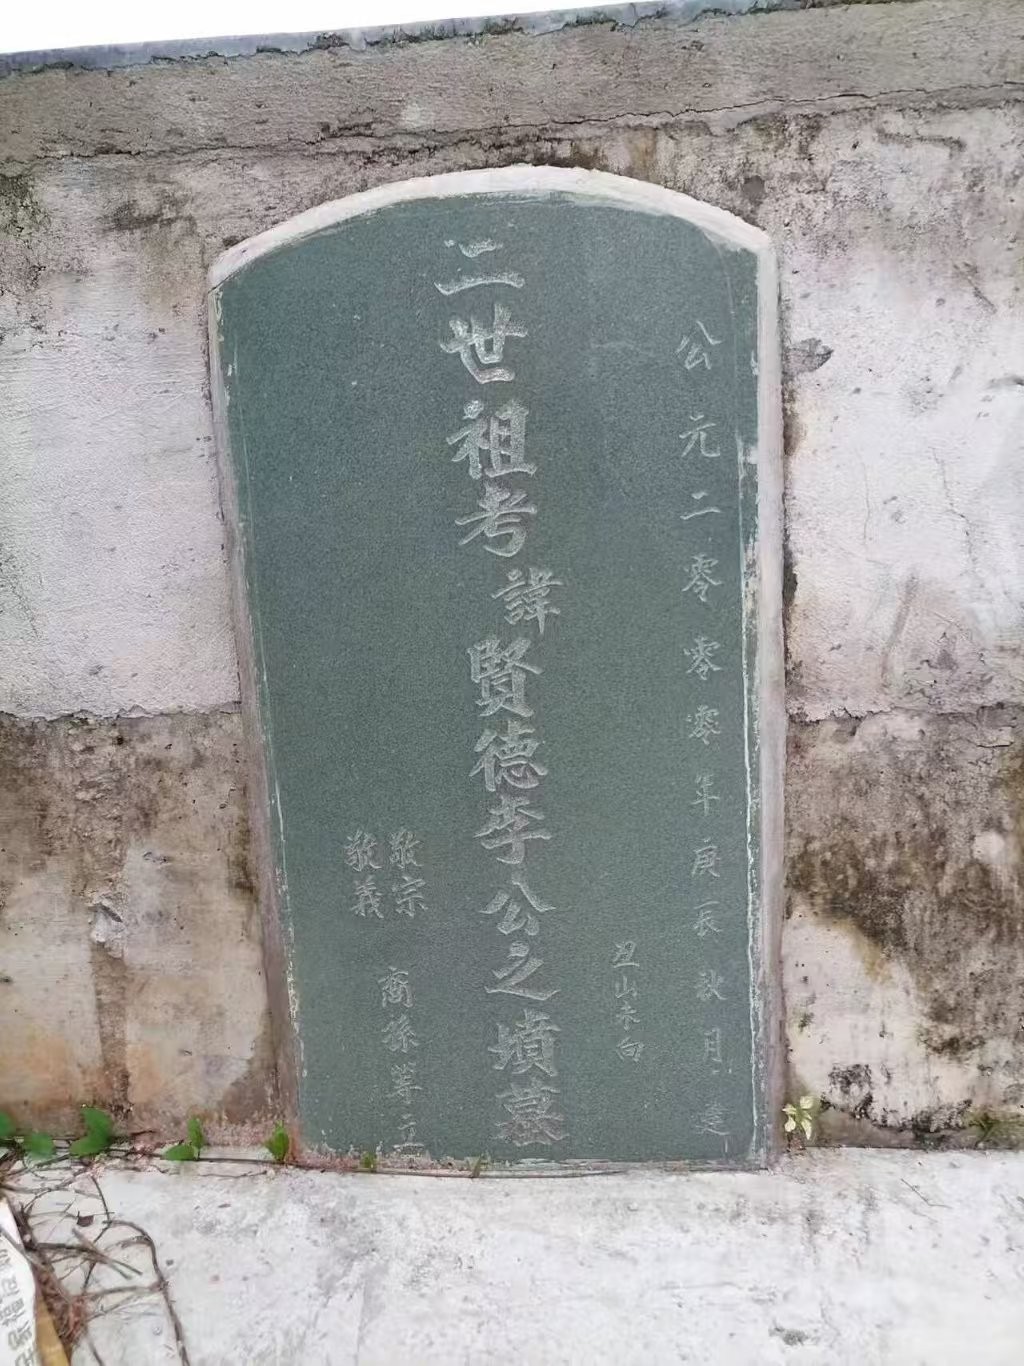 公元二零零零年庚辰秋月建
丑山未向
二世祖考諱賢德李公之墳墓
敬宗
敬義
裔孫等立